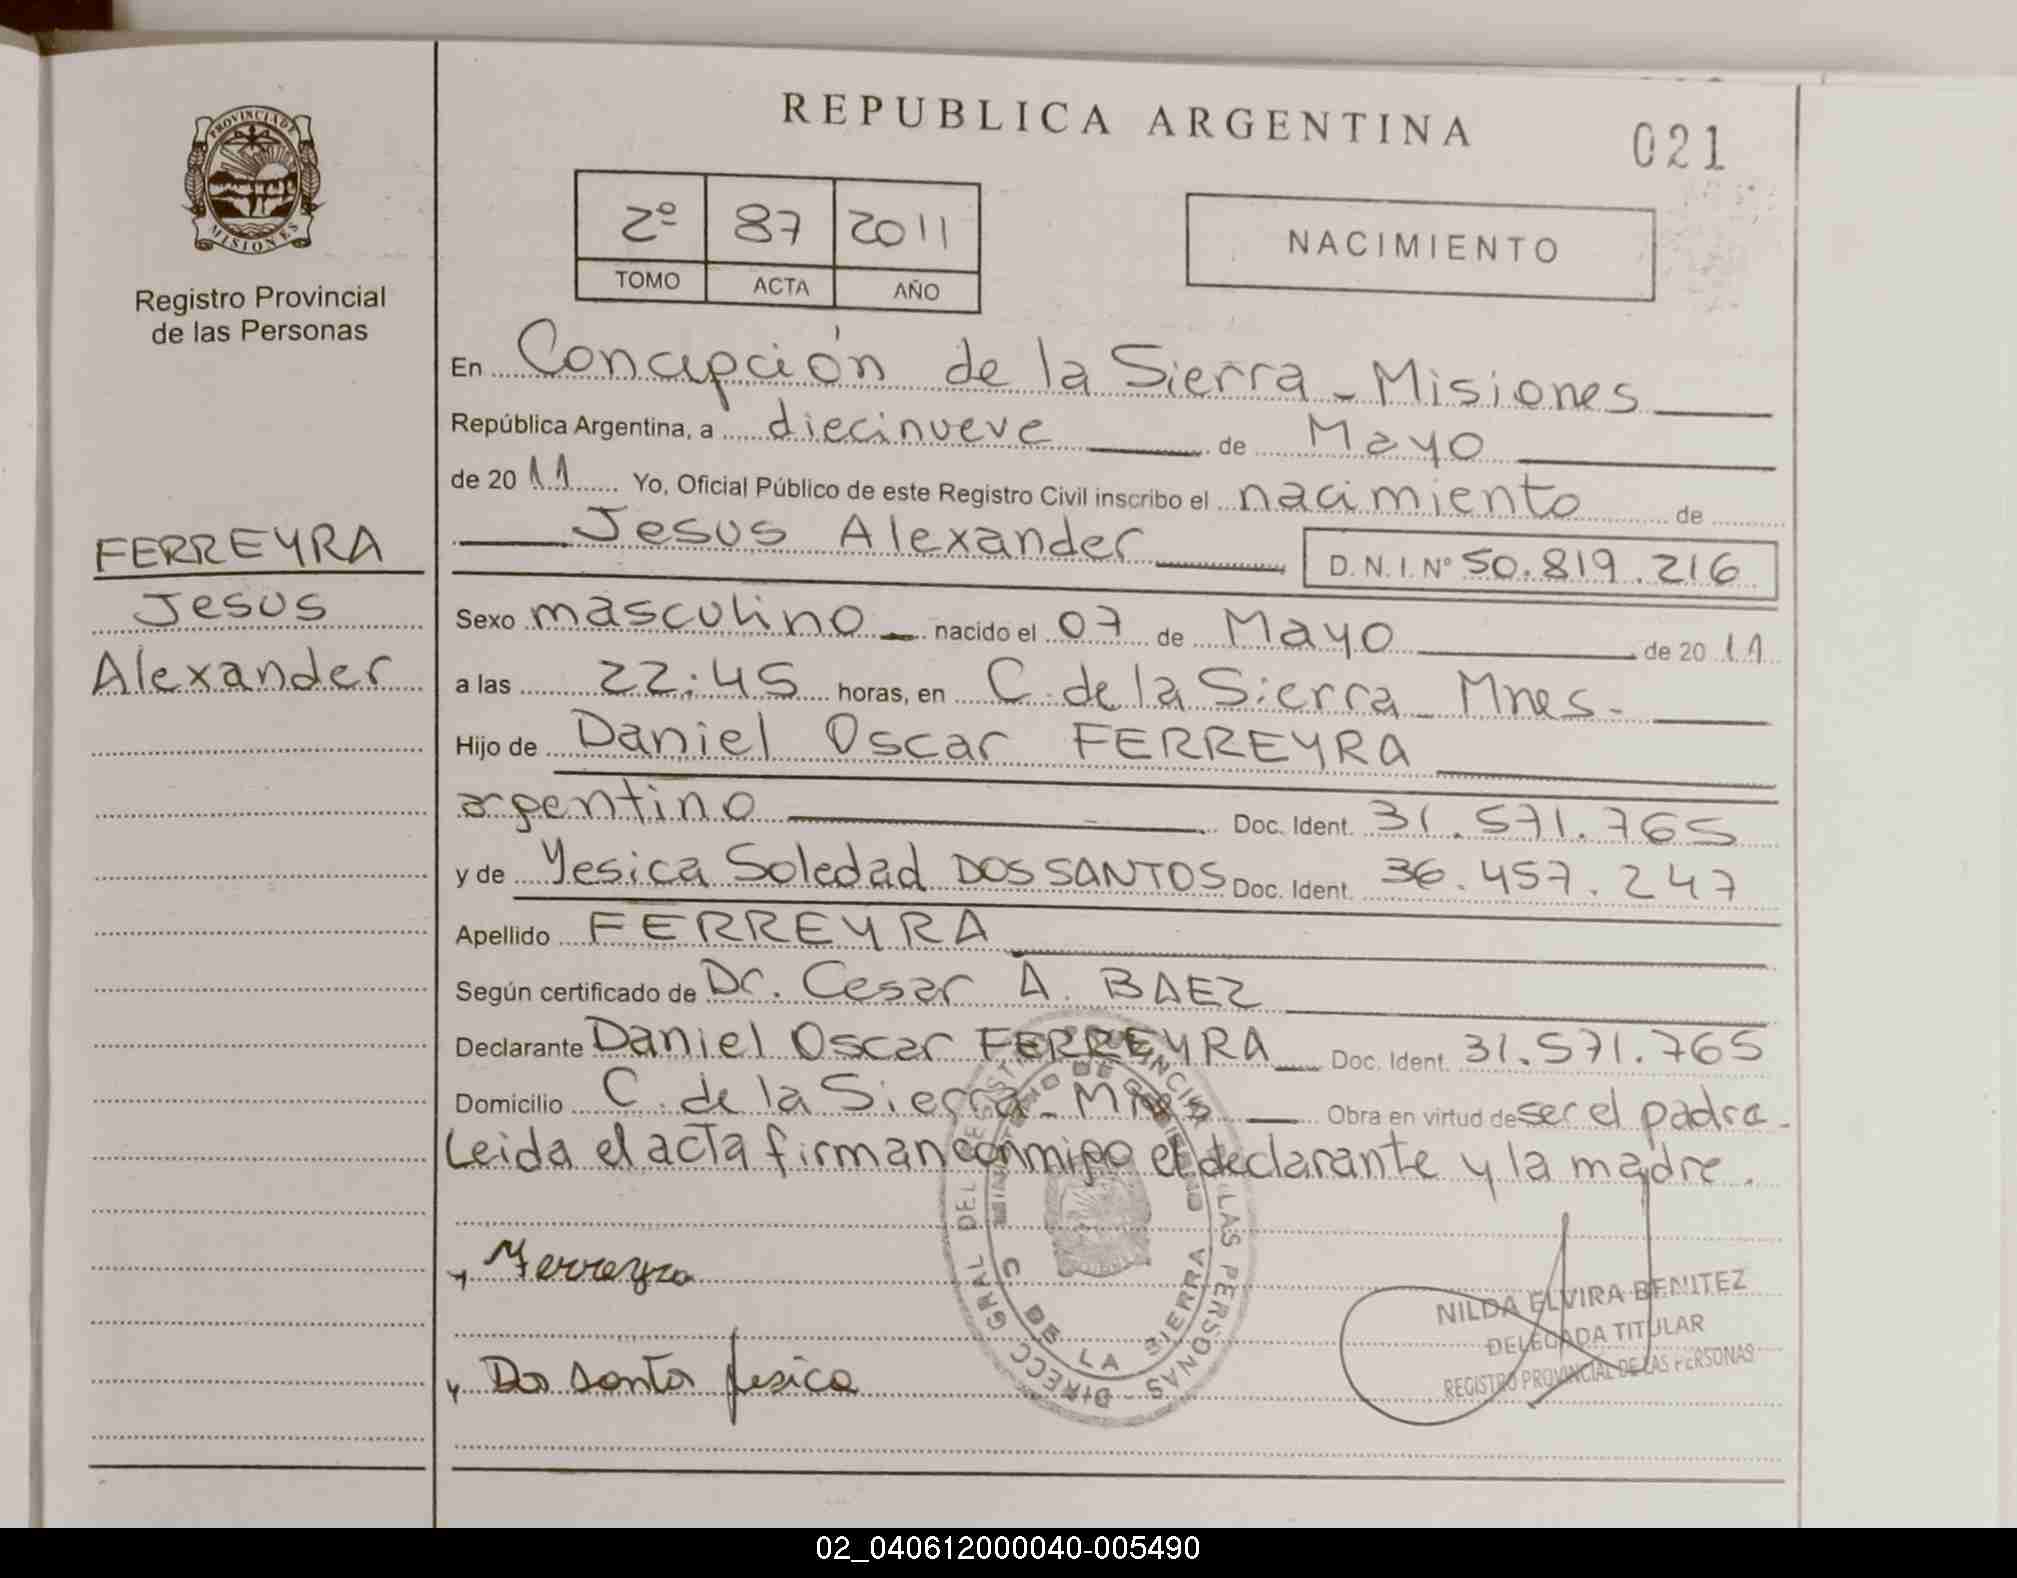 PROVINCIA DE
MISIONES
Registro Provincial
de las Personas
FERREYRA
Jesus
Alexander
REPUBLICA ARGENTINA
021
2º 87 2011
TOMO ACTA AÑO
NACIMIENTO
En Concepción de la Sierra - Misiones
República Argentina, a diecinueve de Mayo
de 2011 Yo, Oficial Público de este Registro Civil inscribo el nacimiento de
Jesus Alexander D.N.I. Nº 50.819.216
Sexo masculino nacido el 07 de Mayo de 2011
a las 22:45 horas, en C. de la Sierra - Mnes.
Hijo de Daniel Oscar FERREYRA
argentino Doc. Ident. 31.571.765
y de Yesica Soledad DOS SANTOS Doc. Ident. 36.457.247
Apellido FERREYRA
Según certificado de Dr. Cesar A. BAEZ
Declarante Daniel Oscar FERREYRA Doc. Ident. 31.571.765
Domicilio C. de la Sierra - Mnes Obra en virtud de ser el padre.
Leida el acta firman conmigo el declarante y la madre.
Ferreyra
Dos santos Jesica
C DE LA SIERRA
NILDA ELVIRA BENITEZ
DELEGADA TITULAR
REGISTRO PROVINCIAL DE LAS PERSONAS
02_040612000040-005490